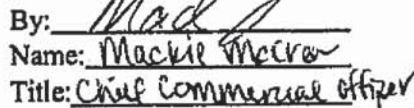 By:
Name: Mackie McCrea
Title: Chief Commercial Officer